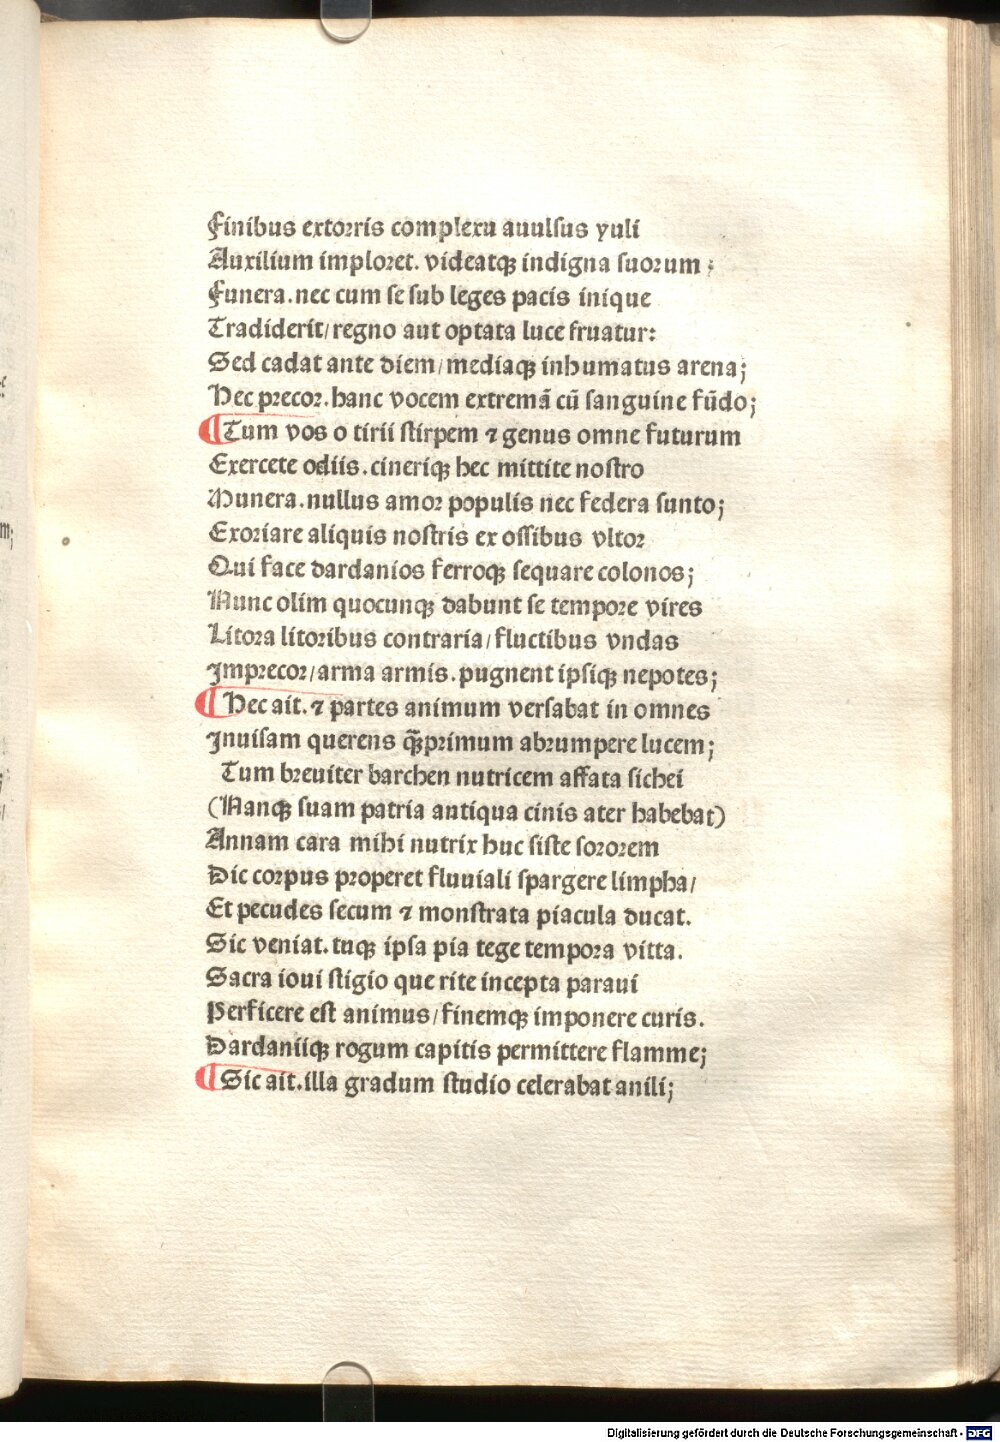 Finibus extorris complexu auulsus yuli
Auxilium imploret. videatqȝ indigna suorum ;
Funera.nec cum se sub leges pacis inique
Tradiderit/regno aut optata luce fruatur:
Sed cadat ante diem/mediaqȝ inhumatus arena;
Hec precor.hanc vocem extremā cū sanguine fūdo;
¶ Tum vos o tirii stirpem ⁊ genus omne futurum
Exercete odiis.cineriqȝ hec mittite nostro
Munera.nullus amor populis nec federa sunto;
Exoriare aliquis nostris ex ossibus vltor
Qui face dardanios ferroqȝ sequare colonos;
Nunc olim quocunqȝ dabunt se tempore vires
Litora litoribus contraria/fluctibus vndas
Imprecor/arma armis.pugnent ipsiqȝ nepotes;
¶ Hec ait.⁊ partes animum versabat in omnes
Inuisam querens qȝ̄primum abrumpere lucem;
Tum breuiter barchen nutricem affata sichei
(Nanqȝ suam patria antiqua cinis ater habebat)
Annam cara mihi nutrix huc siste sororem
Dic corpus properet fluuiali spargere limpha/
Et pecudes secum ⁊ monstrata piacula ducat.
Sic veniat.tuqȝ ipsa pia tege tempora vitta.
Sacra ioui stigio que rite incepta paraui
Perficere est animus/finemqȝ imponere curis.
Dardaniiqȝ rogum capitis permittere flamme;
¶ Sic ait.illa gradum studio celerabat anili;
m;
Digitalisierung gefördert durch die Deutsche Forschungsgemeinschaft - DFG